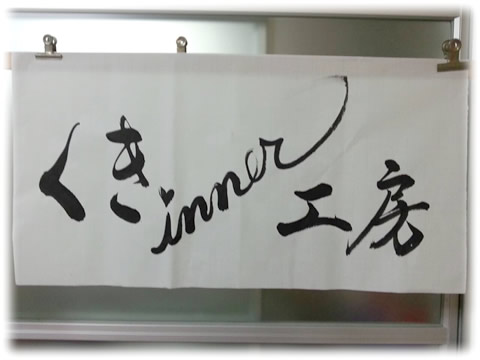 くきinner工房